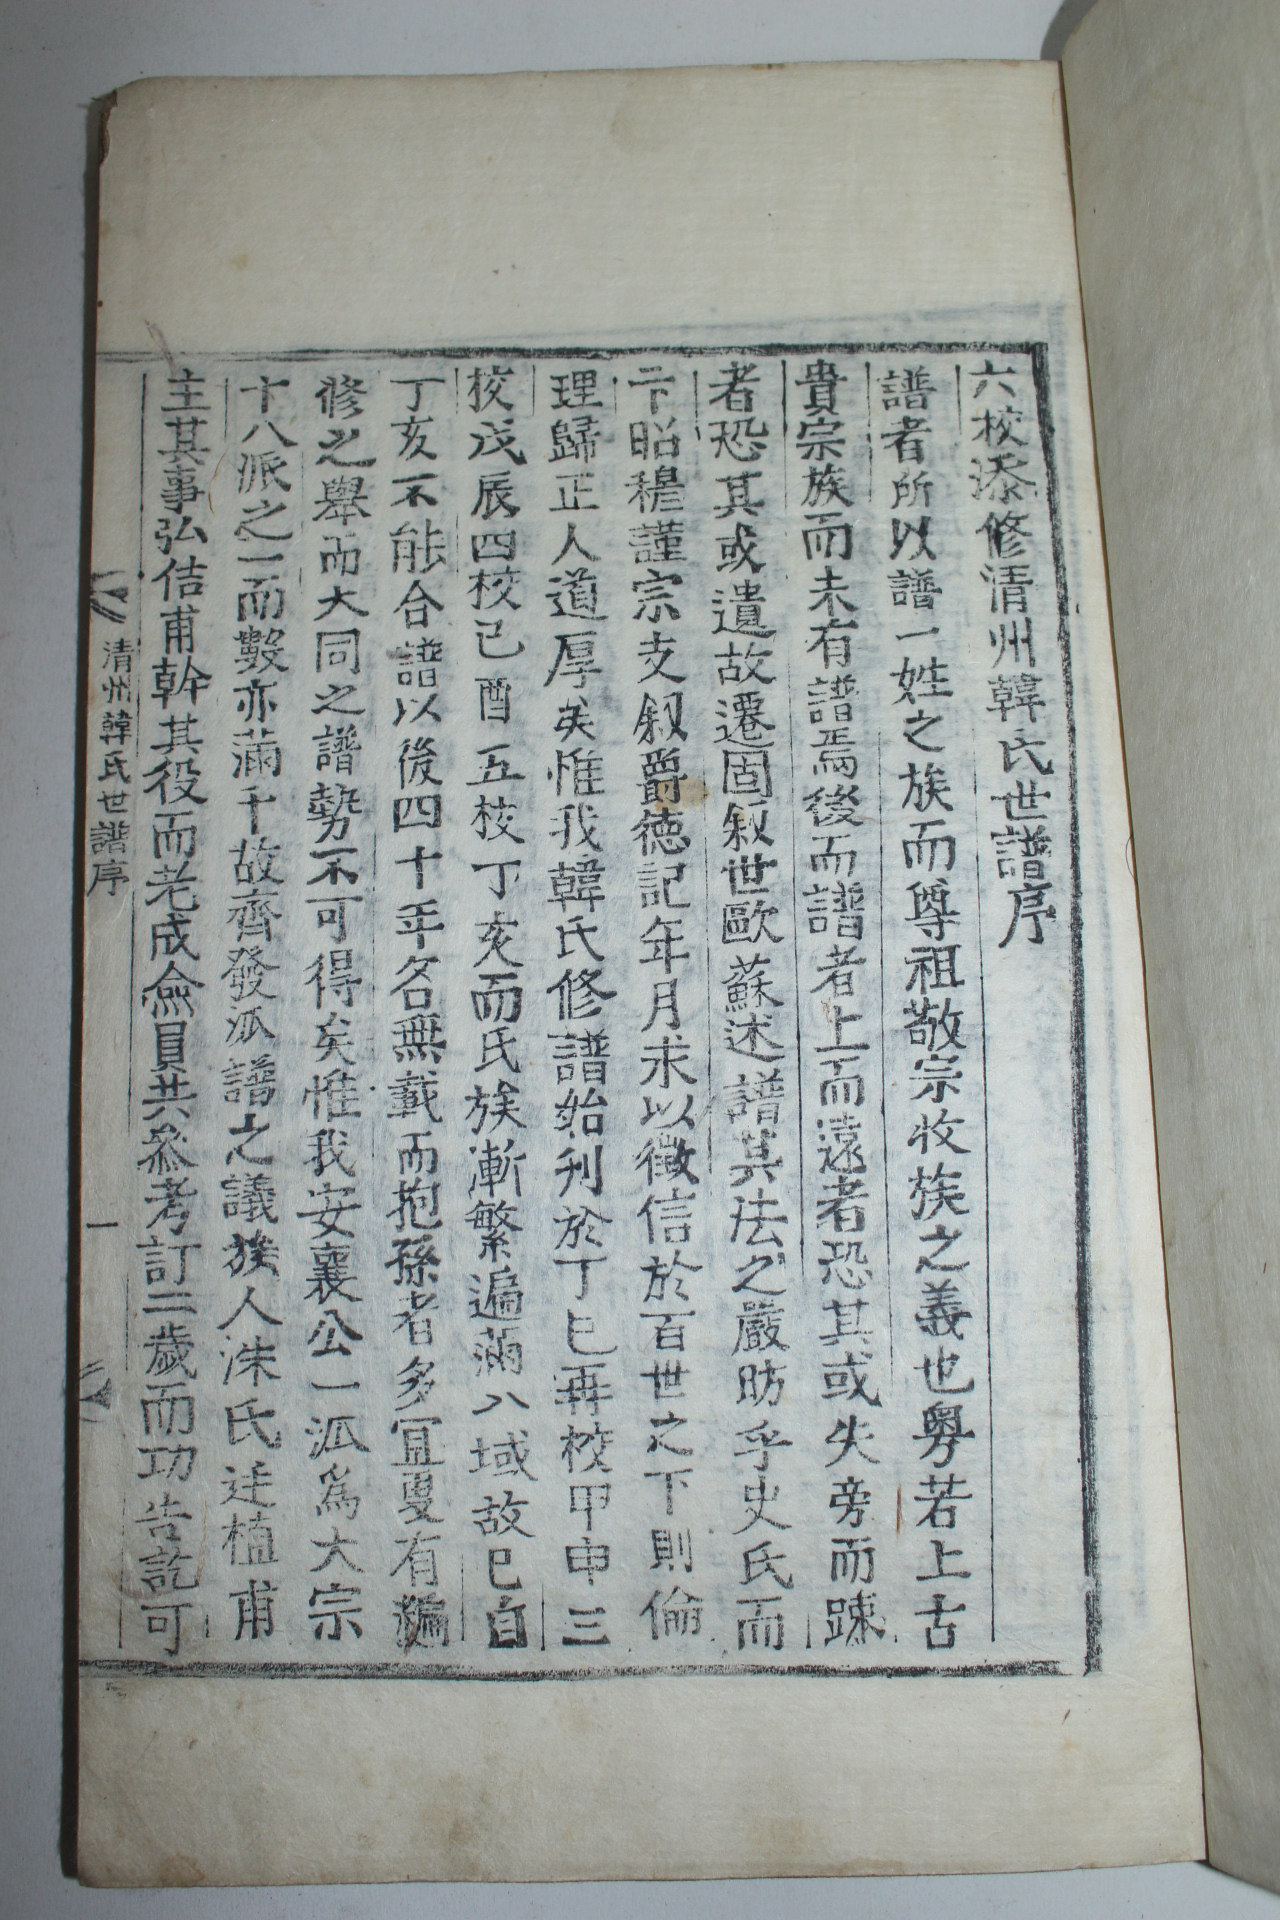 六校添修清州韓氏世譜序
譜者所以譜一姓之族而尊祖敬宗收族之義也粤若上古
貴宗族而未有譜焉後而譜者上而遠者恐其或失旁而踈
者恐其或遺故遷固叙世歐蘇述譜其法之嚴昉乎史氏而
下昭穆謹宗支叙爵德記年月求以徵信於百世之下則倫
理歸正人道厚矣惟我韓氏修譜始刊於丁巳再校甲申三
校戊辰四校己酉五校丁亥而氏族漸繁遍滿八域故已自
丁亥不能合譜以後四十年名無載而抱孫者多冝更有編
修之擧而大同之譜勢不可得矣惟我安襄公一派爲大宗
十八派之一而數亦滿千故齊發派譜之議族人洙氏廷植甫
主其事弘佶甫幹其役而老成僉員共叅考訂二歲而功告訖可
清州韓氏世譜序
一